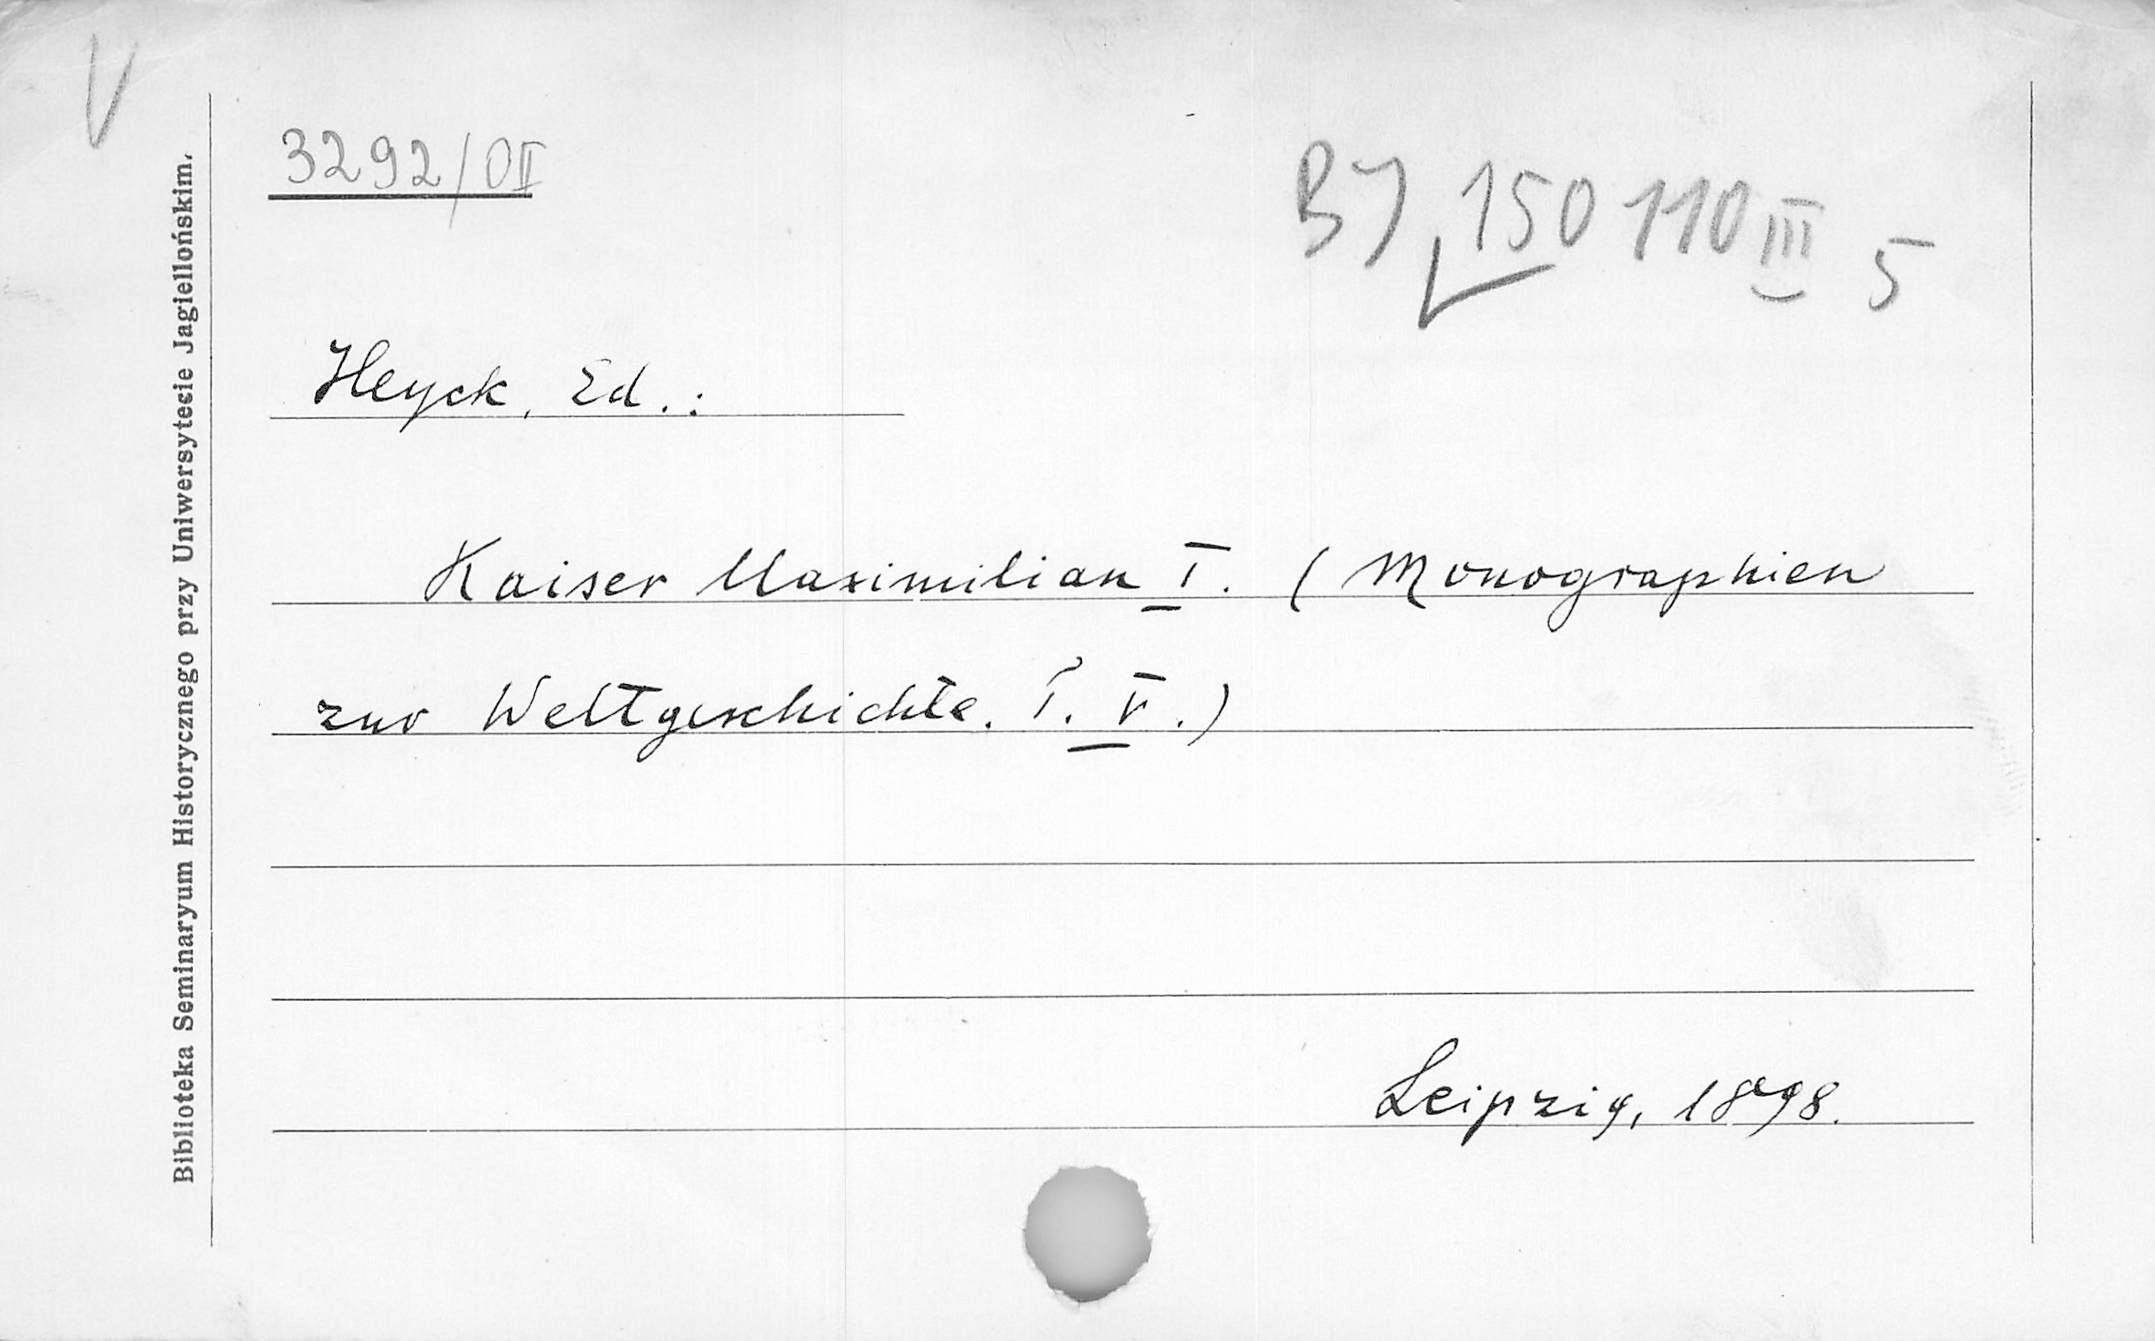 V
3292/OII
BJ 150 110 III 5
Heyck, Ed.:
Kaiser Maximilian I. (Monographien
zur Weltgeschichte. T. V.)
Leipzig, 1898.
Biblioteka Seminaryum Historycznego przy Uniwersytecie Jagiellońskim.